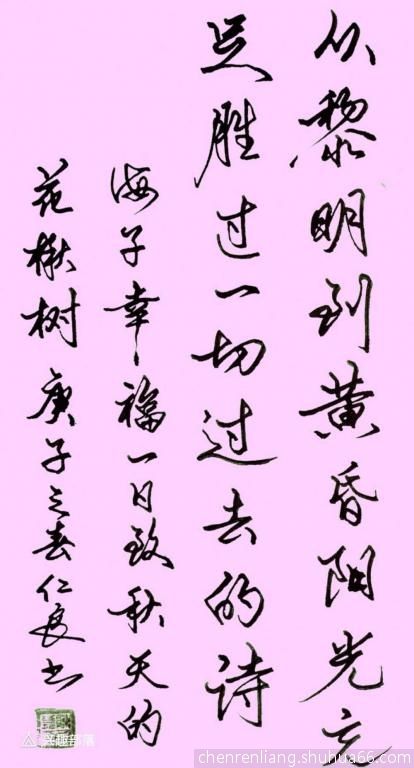 从黎明到黄昏阳光充
足胜过一切过去的诗
海子幸福一日致秋天的
花楸树 庚子之春仁良书
兴趣部落
chenrenliang.shuhua66.com